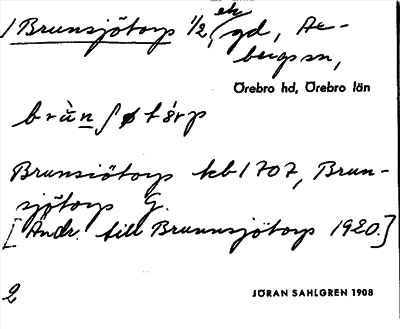 1 Brunsjötorp 1/2 ek
gd, Ae-
bergs sn,
Örebro hd, Örebro län
brùn ʃøtórp
Brunsiötorp kb 1707, Brun-
sjötorp G.
[Ändr. till Brunnsjötorp 1920.]
2
JÖRAN SAHLGREN 1908